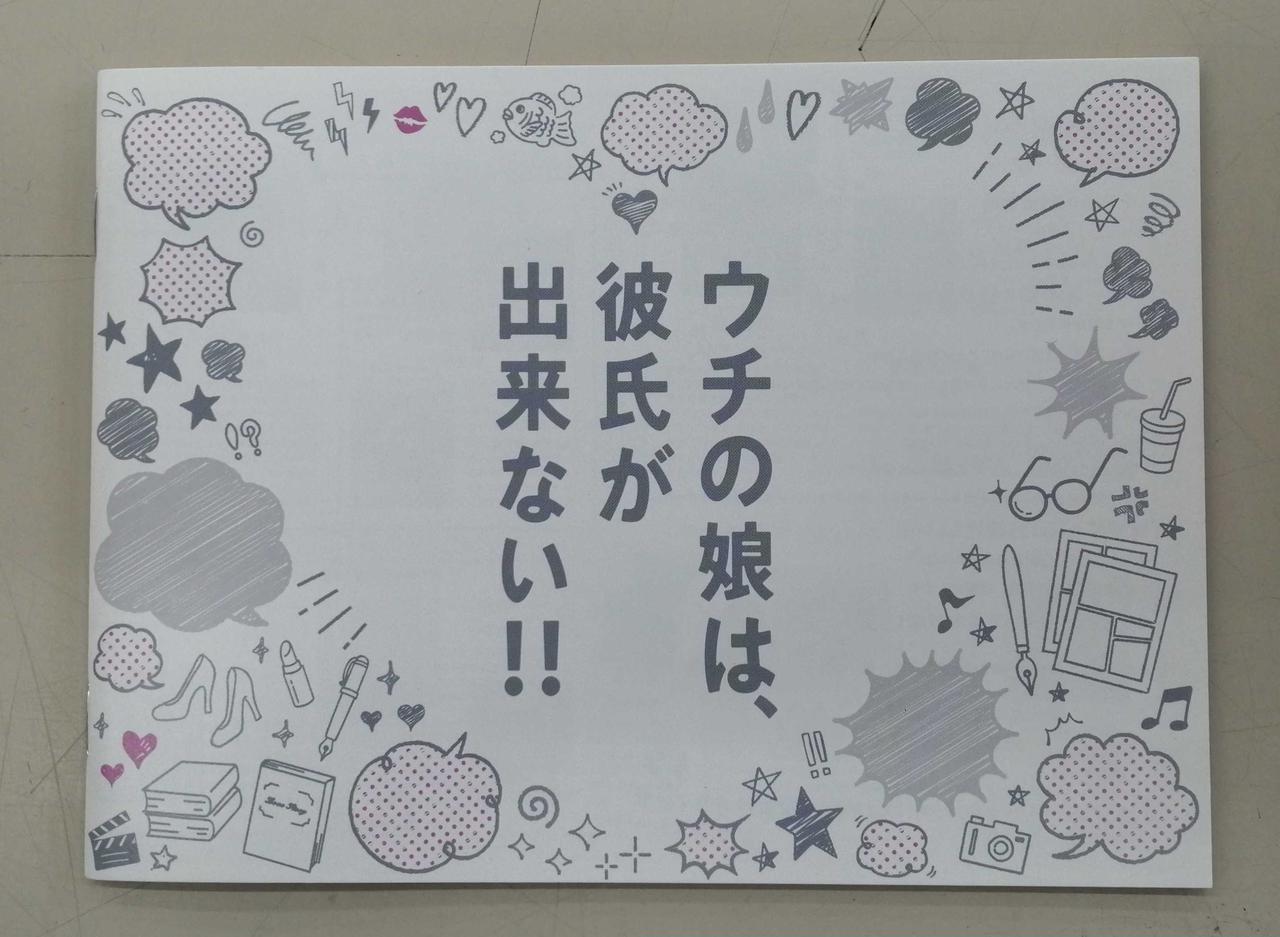 ウチの娘は、
彼氏が
出来ない!!
Love Story